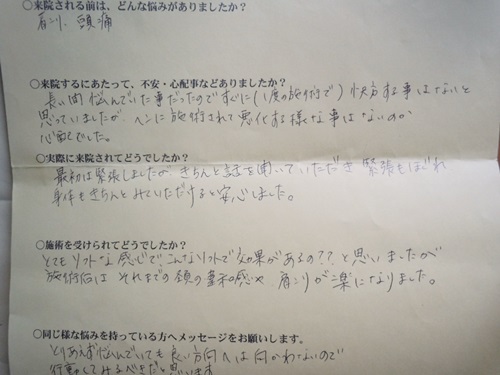 ○来院される前は、どんな悩みがありましたか？
肩こり、頭痛
○来院するにあたって、不安・心配事などありましたか？
長い間悩んでいた事だったので すぐに(1度の施術で)快方する事はないと
思っていましたが、ヘンに施術されて悪化する様な事はないのか
心配でした。
○実際に来院されてどうでしたか？
最初は緊張しましたが、きちんと話を聞いていただき 緊張もほぐれ
身体もきちんとみていただけると安心しました。
○施術を受けられてどうでしたか？
とてもソフトな感じで、こんなソフトで効果があるの？？と思いましたが
施術后は それまでの頭の違和感や、肩こりが楽になりました。
○同じ様な悩みを持っている方へメッセージをお願いします。
とりあえず悩んでいても良い方向へは向かわないので
行動してみるべきだと思います